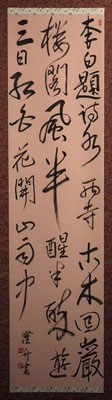 李白題詩水西寺古木回巖
樓閣風半醒半醉遊
三日紅白花開山雨中